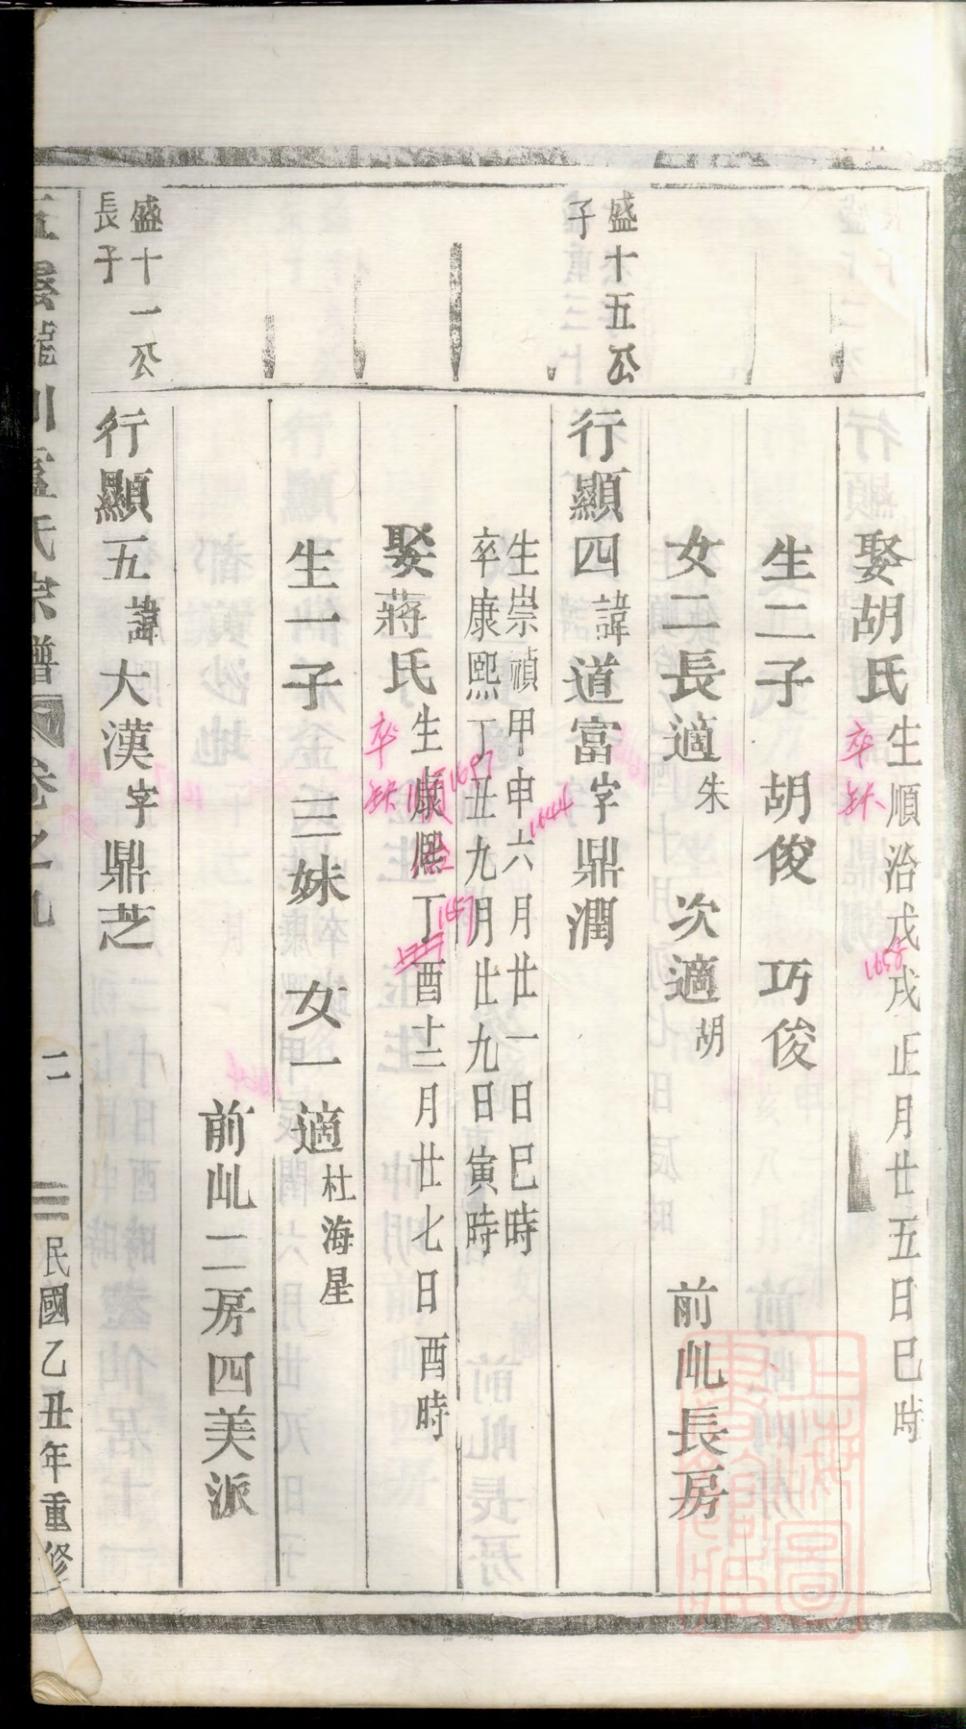 娶胡氏生順治戊戌正月廿五日巳時
卒缺
1658
生二子 胡俊 巧俊
女二長適朱 次適胡 前乢長房
盛十五公
子
行顯四諱道富字鼎潤
生崇禎甲申六月廿一日巳時
1644
卒康熙丁丑九月廿九日寅時
1697
娶蔣氏生康熙丁酉十二月廿七日酉時
卒缺
1657
生一子 三妹 女一適杜海星
前乢二房四美派
盛十一公
長子
行顯五諱大漢字鼎芝
氏宗譜 卷之九 二 民國乙丑年重修
上海圖書館藏